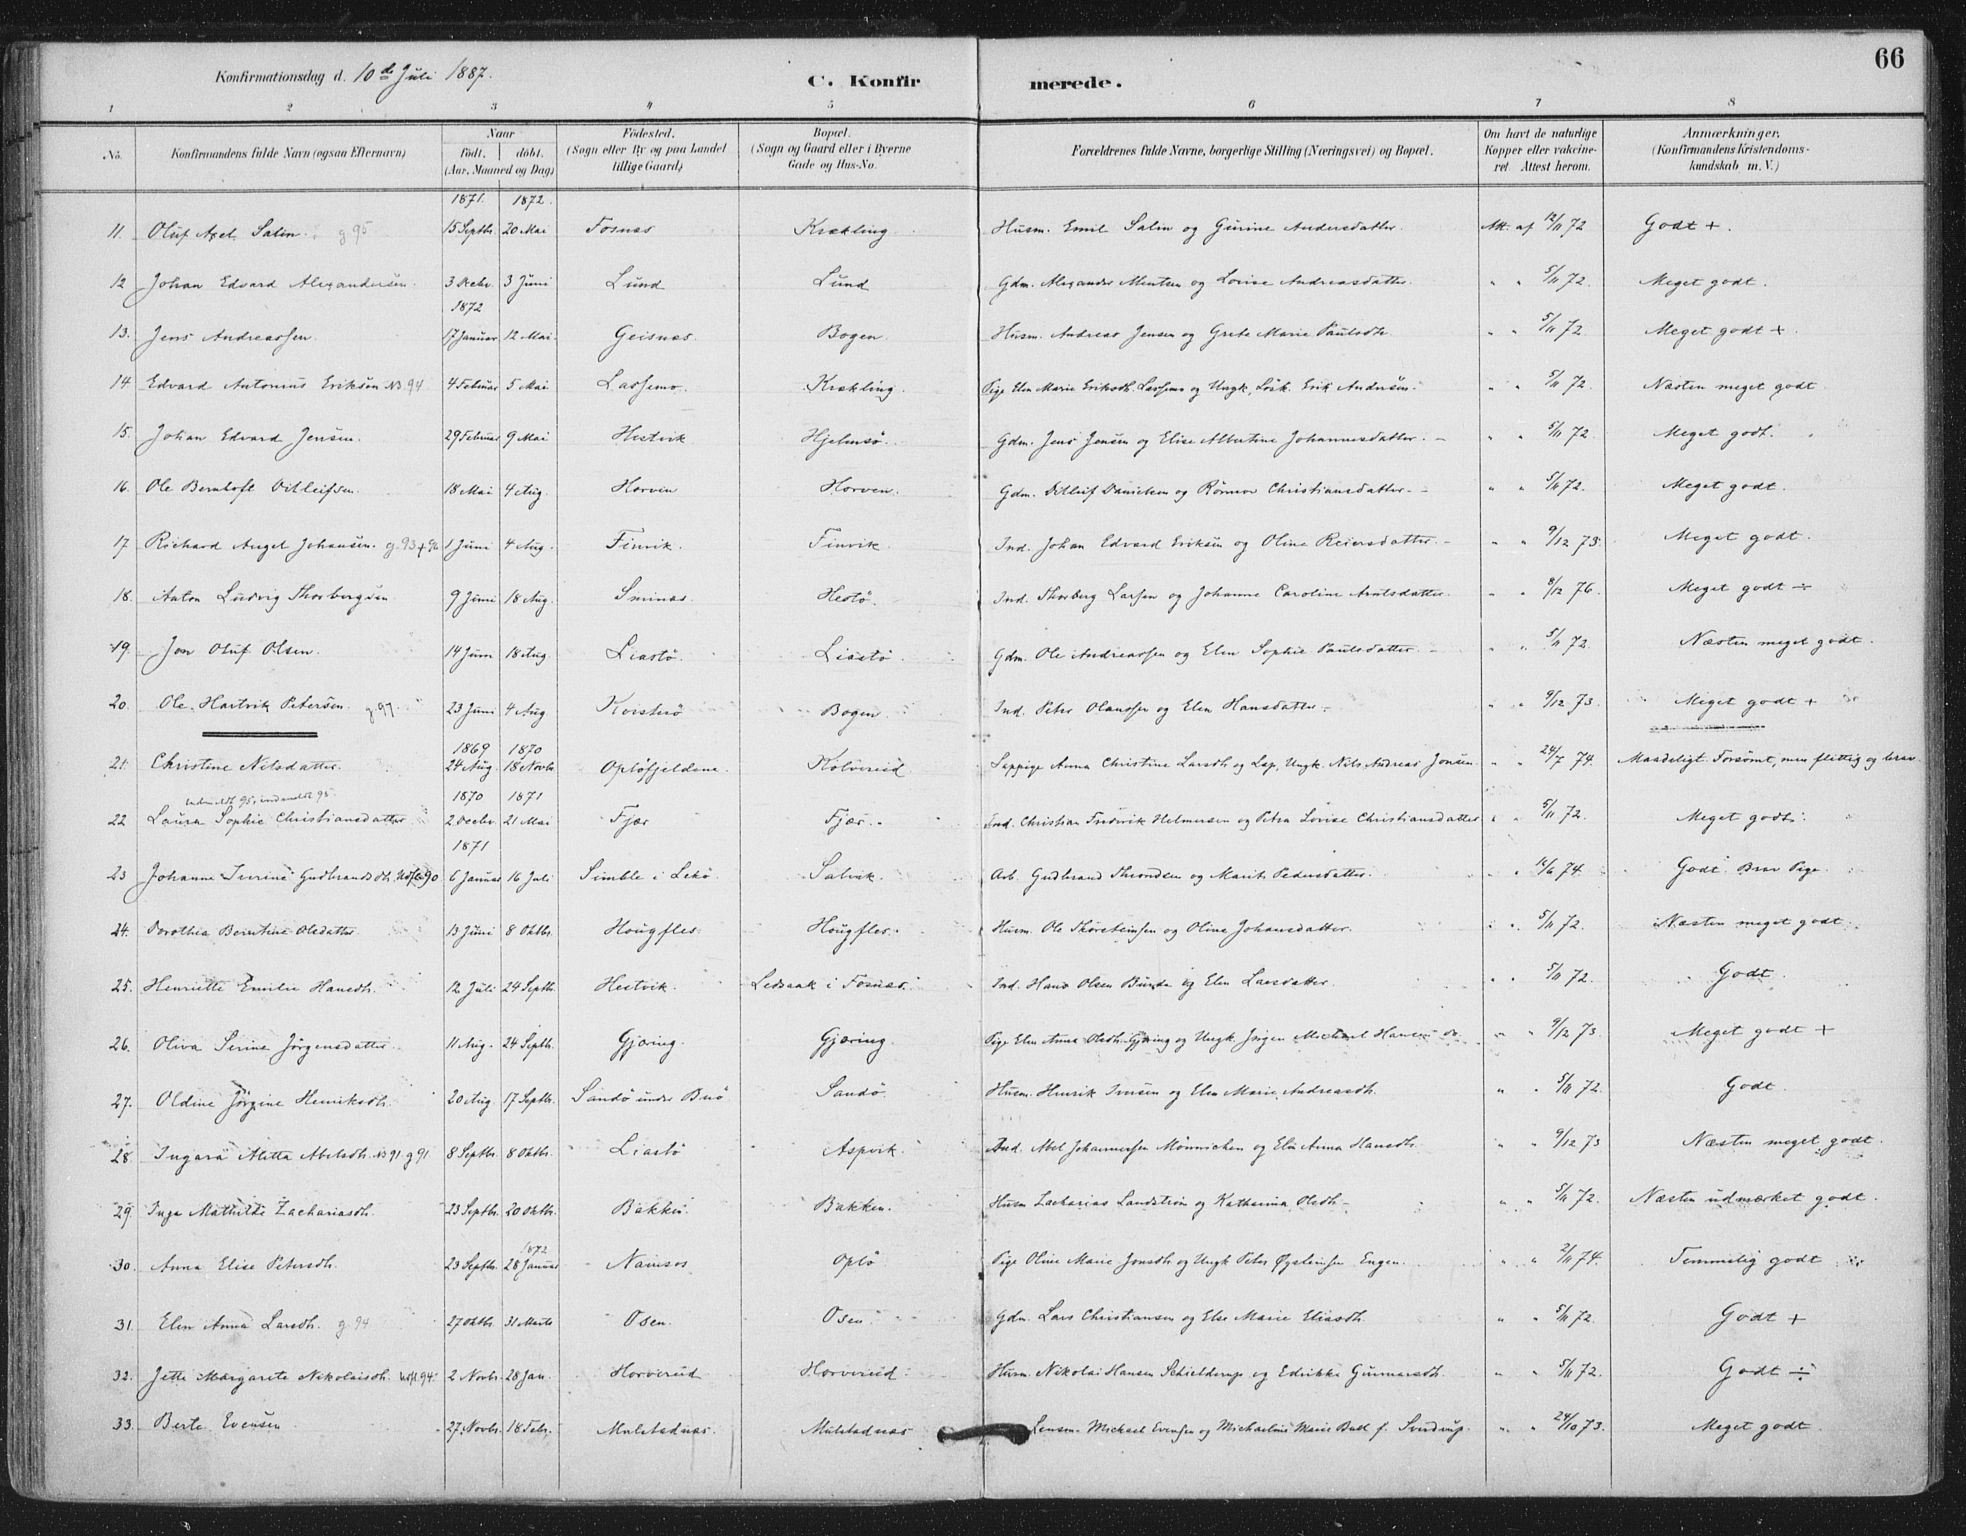 66
Konfirmationsdag d. 10de Juli 1887.
C. Konfirmerede.
1 2 3 4 5 6 7 8
No. Konfirmandens fulde Navn (ogsaa Efternavn) Naar Født. døbt. (Aar, Maaned og Dag) Fødested. (Sogn eller By og paa Landet tillige Gaard) Bopæl. (Sogn og Gaard eller i Byerne Gade og Hus-No. Forældrenes fulde Navne, borgerlige Stilling (Næringsvei) og Bopæl. Om havt de naturlige Kopper eller vakcineret. Attest herom. Anmærkninger. (Konfirmandens Kristendomskundskab m. V.)
1871. 1872.
11. Oluf Axel Salin. g 95 15 Septbr. 20 Mai Fosnæs Krækling Husm. Emil Salin og Gurine Andersdatter. Att. af 12/11 72 Godt +.
12 Johan Edvard Alexandersen. 3 Decbr. 3 Juni Lund Lund Gdm. Alexander Mentsen og Lovise Andreasdatter. " " 5/11 72. Meget godt.
1872
13. Jens Andreassen 17 Januar 12 Mai. Geisnæs. Bogen. Husm. Andreas Jensen og Grete Marie Paulsdtr " " 5/11 72. Meget godt +.
14 Edvard Antonius Eriksen N3 94 4 Februar 5 Mai Lassemo. Krækling. Pige Elen Marie Eriksdtr. Lassemo og Ungk. Lösk. Erik Andersen. " " 5/11 72. Næsten meget godt
15. Johan Edvard Jensen. 29 Februar 9 Mai Hestvik Hjelmsö. Gdm. Jens Jensen og Elise Albertine Johannesdatter. " " 5/11 72. Meget godt.
16. Ole Bernhoft Ditleifsen 18 Mai 4 Aug. Horven Horven. Gdm. Ditleif Danielsen og Christiansdatter. " " 5/11 72. Meget godt.
17 Richard Angel Johansen. g. 93 + 96 1 Juni 4 Aug. Finvik. Finvik. Ind. Johan Edvard Eriksen og Oline Reiersdatter. " " 9/12 73. Meget godt.
18. Anton Ludvig Thorbergsen 9 Juni 18 Aug. Smines. Hestö. Ind. Thorberg Larsen og Johanne Caroline Arntsdatter. " " 8/12 76. Meget godt ÷
19. Jon Oluf Olsen. 14 Juni 18 Aug Liastö. Liastö. Gdm. Ole Andreassen og Elen Sophie Paulsdatter. " " 5/11 72. Næsten meget godt.
20. Ole Hartvik Petersen. g. 97. 23 Juni 4 Aug Korstrø Bogen Ind. Peter Olaussen og Elen Hansdatter. " " 9/12 73. Meget godt +
1869 1870
21. Christine Nilsdatter. 24 Aug. 18 Novbr. Opløfjeldene. Kolvereid Lappige Anna Christine Larsdtr og Lap, Ungk. Nils Andreas Jonsen " " 24/7 74. Maadeligt. Forsømt, men flittig og brav.
Udmeldt 95, indmeldt 95. 1870 1871
22 Laura Sophie Christiansdatter 2 Decbr. 21 Mai Fjær Fjær. Ind. Christian Frederik Helmersen og Petra Lovise Christiansdatter " " 5/11 72. Meget godt.
1871
23 Johanne Iverine Gudbrandsdtr. Udfl. 90 6 Januar 16 Juli Simble i Lekö. Salvik. Arb. Gudbrand Throndsen og Marit Pedersdatter. " 14/6 74. Godt. Brav Pige.
24. Dorothea Berntine Olsdatter 13 Juni 8 Oktbr. Hougfles. Hougfles. Husm. Ole Thorsteinsen og Oline Johansdatter. " " 5/11 72. Næsten meget godt.
25. Henriette Emilie Hansdtr. 12 Juli 24 Septbr. Hestvik. Ledsaak i Fosnæs. Ind. Hans Olsen Bunda og Elen Larsdatter. " " 5/11 72. Godt.
26. Oliva Serine Jörgensdatter. 11 Aug. 24 Septbr. Gjæring. Gjæring. Pige Elen Anna Olsdtr. Gjæring og Ungk. Jörgen Michael Hansen " " 9/12 73. Meget godt +
27. Oldine Jörgine Henriksdtr. 20 Aug 17 Septbr. Sandö under Buö Sandö. Husm. Henrik Iversen og Elen Marie Andreasdtr. " " 5/11 72. Godt
28. Ingara Aletta Abelsdtr. N3 91. g 91. 8 Septbr. 8 Oktbr. Liastö Aspvik. Ind. Abel Johannessen Mönnichen og Elen Anna Hansdtr. " " 9/12 73 Næsten meget godt.
29. Inga Mathilde Zachariasdtr. 23 Septbr. 20 Oktbr. Bakken. Bakken. Husm Zacharias Landström og Katharina Olsdtr. " " 5/11 72. Næsten udmærket godt.
1872
30. Anna Elise Petersdtr. 23 Septbr. 28 Januar Namsos Oplö Pige Oline Marie Jonsdtr og Ungk Peter Øysteinsen Engen. " " 2/11 74. Temmelig godt
31. Elen Anna Larsdtr. g. 94 27 Oktbr. 31 Marts Osen. Osen. Gdm. Lars Christiansen og Else Marie Eliasdtr. " " 5/11 72. Godt +
32. Jette Margarete Nikolaisdtr. Udfl 94. 2 Novbr. 28 Jan. Horvereid Horvereid Husm. Nikolai Hansen Schjelderup og Edrikke Gunnarsdtr. " " 5/11 72. Godt ÷
33. Berte Evensen 27 Novbr. 18 Febr. Mulstadnæs. Mulstadnæs Lensm. Michael Evensen og Michaeline Marie Bull f. Sverdrup. " " 24/10 73. Meget godt